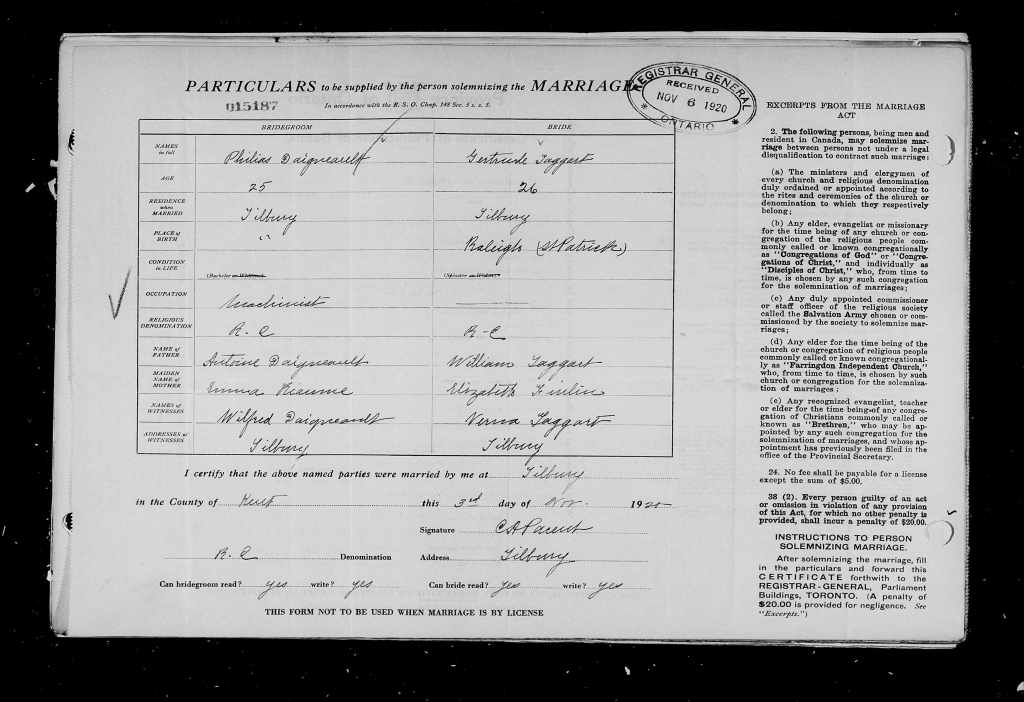 PARTICULARS to be supplied by the person solemnizing the MARRIAGE
015187
In accordance with the R. S. O. Chap. 148 Sec. 5 s. s. 5.
REGISTRAR GENERAL
RECEIVED
NOV 6 1920
* ONTARIO *
BRIDEGROOM BRIDE
NAMES in full Philias Daigneault Gertrude Taggart
AGE 25 26
RESIDENCE when MARRIED Tilbury Tilbury
PLACE of BIRTH " Raleigh (St Patrick)
CONDITION in LIFE (Bachelor or Widower) (Spinster or Widow)
OCCUPATION Machinist
RELIGIOUS DENOMINATION R. C R-C
NAME of FATHER Antoine Daigneault William Taggart
MAIDEN NAME of MOTHER Emma Elizabeth Finlin
NAMES of WITNESSES Wilfred Daigneault Verna Taggart
ADDRESSES of WITNESSES Tilbury Tilbury
I certify that the above named parties were married by me at Tilbury
in the County of Kent this 3rd day of Nov. 1920
Signature C A Parent
R. C Denomination Address Tilbury
Can bridegroom read? yes write? yes Can bride read? yes write? yes
THIS FORM NOT TO BE USED WHEN MARRIAGE IS BY LICENSE
EXCERPTS FROM THE MARRIAGE
ACT
2. The following persons, being men and
resident in Canada, may solemnize mar-
riage between persons not under a legal
disqualification to contract such marriage:
(a) The ministers and clergymen of
every church and religious denomination
duly ordained or appointed according to
the rites and ceremonies of the church or
denomination to which they respectively
belong;
(b) Any elder, evangelist or missionary
for the time being of any church or con-
gregation of the religious people com-
monly called or known congregationally
as "Congregations of God" or "Congre-
gations of Christ," and individually as
"Disciples of Christ," who, from time to
time, is chosen by any such congregation
for the solemnization of marriages;
(c) Any duly appointed commissioner
or staff officer of the religious society
called the Salvation Army chosen or com-
missioned by the society to solemnize mar-
riages;
(d) Any elder for the time being of the
church or congregation of religious people
commonly called or known congregational-
ly as "Farringdon Independent Church,"
who, from time to time, is chosen by such
church or congregation for the solemniza-
tion of marriages;
(e) Any recognized evangelist, teacher
or elder for the time being of any congre-
gation of Christians commonly called or
known as "Brethren," who may be ap-
pointed by any such congregation for the
solemnization of marriages, and whose ap-
pointment has previously been filed in the
office of the Provincial Secretary.
24. No fee shall be payable for a license
except the sum of $5.00.
38 (2). Every person guilty of an act
or omission in violation of any provision
of this Act, for which no other penalty is
provided, shall incur a penalty of $20.00.
INSTRUCTIONS TO PERSON
SOLEMNIZING MARRIAGE.
After solemnizing the marriage, fill
in the particulars and forward this
CERTIFICATE forthwith to the
REGISTRAR-GENERAL, Parliament
Buildings, TORONTO. (A penalty of
$20.00 is provided for negligence. See
"Excerpts.")